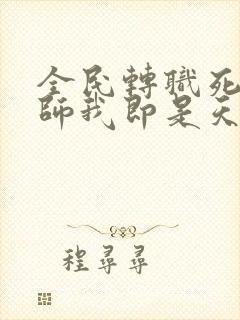 全民轉職死
師我即是天
程尋尋